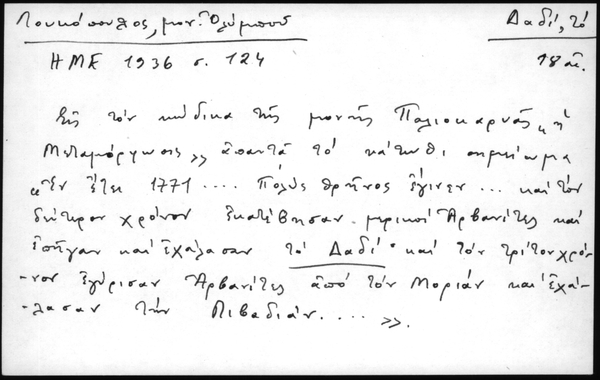 Λουκόπουλος, μον. Ὀλύμπου
Δαδί, τό
ΗΜΕ 1936 σ. 124
18 αἰ.
Εἰς τόν κώδικα τῆς μονῆς Παλιοκαρυᾶς "ἡ
Μεταμόρφωσις» ἀπαντᾷ τό κάτωθι σημείωμα
"Ἐν ἔτει 1771 .... Πολύς θρῆνος ἔγινεν ... καί τόν
δεύτερον χρόνον ἐκατέβησαν μερικοί Ἀρβανίτες καί
ἐπῆγαν καί ἐχάλασαν τό Δαδί· καί τόν τρίτον χρό-
-νον ἐγύρισαν Ἀρβανίτες ἀπό τόν Μοριάν καί ἐχά-
-λασαν τήν Λιβαδιάν .... ».